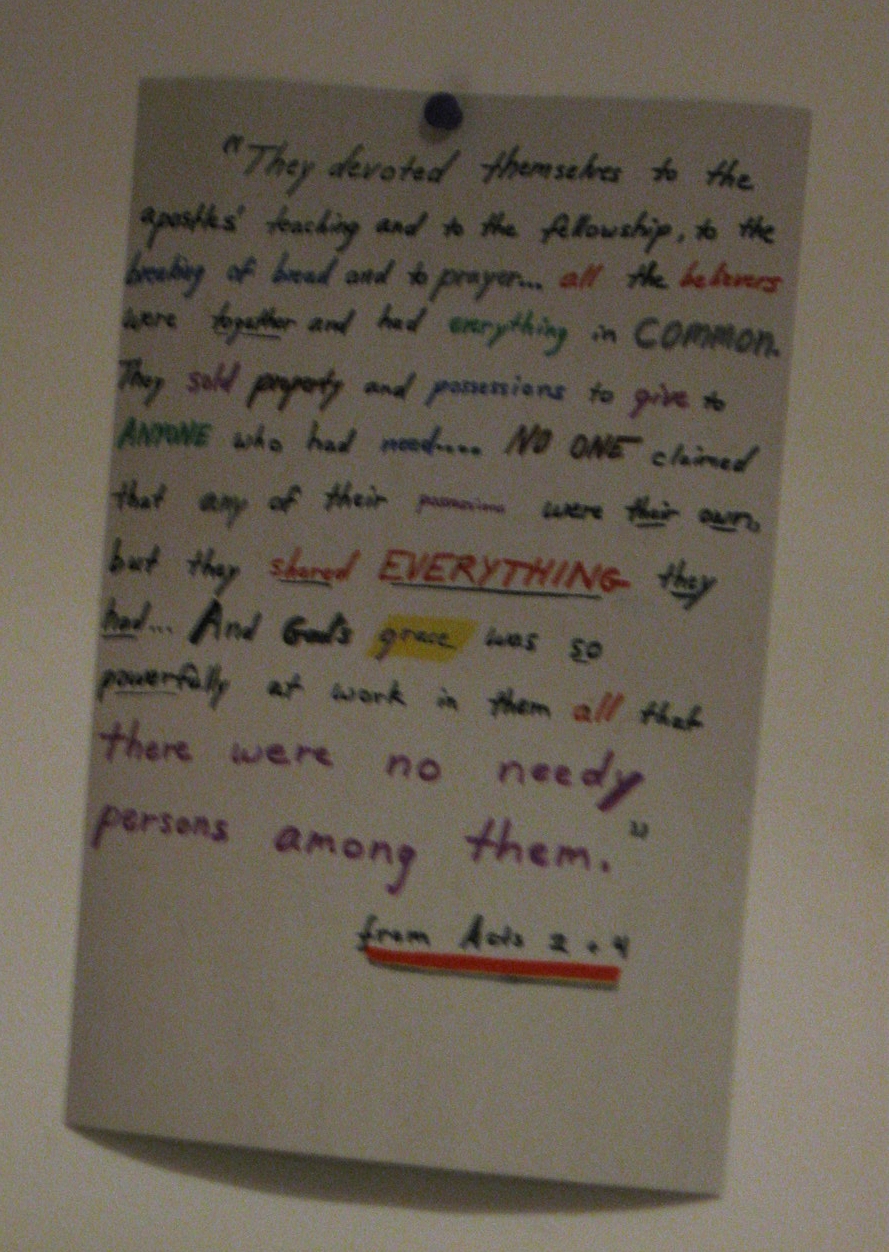 "They devoted themselves to the
apostles' teaching and to the fellowship, to the
breaking of bread and to prayer... all the believers
were together and had everything in COMMON.
They sold property and possessions to give to
ANYONE who had need.... NO ONE claimed
that any of their possessions were their own,
but they shared EVERYTHING they
had... And God's grace was so
powerfully at work in them all that
there were no needy
persons among them."
from Acts 2 + 4